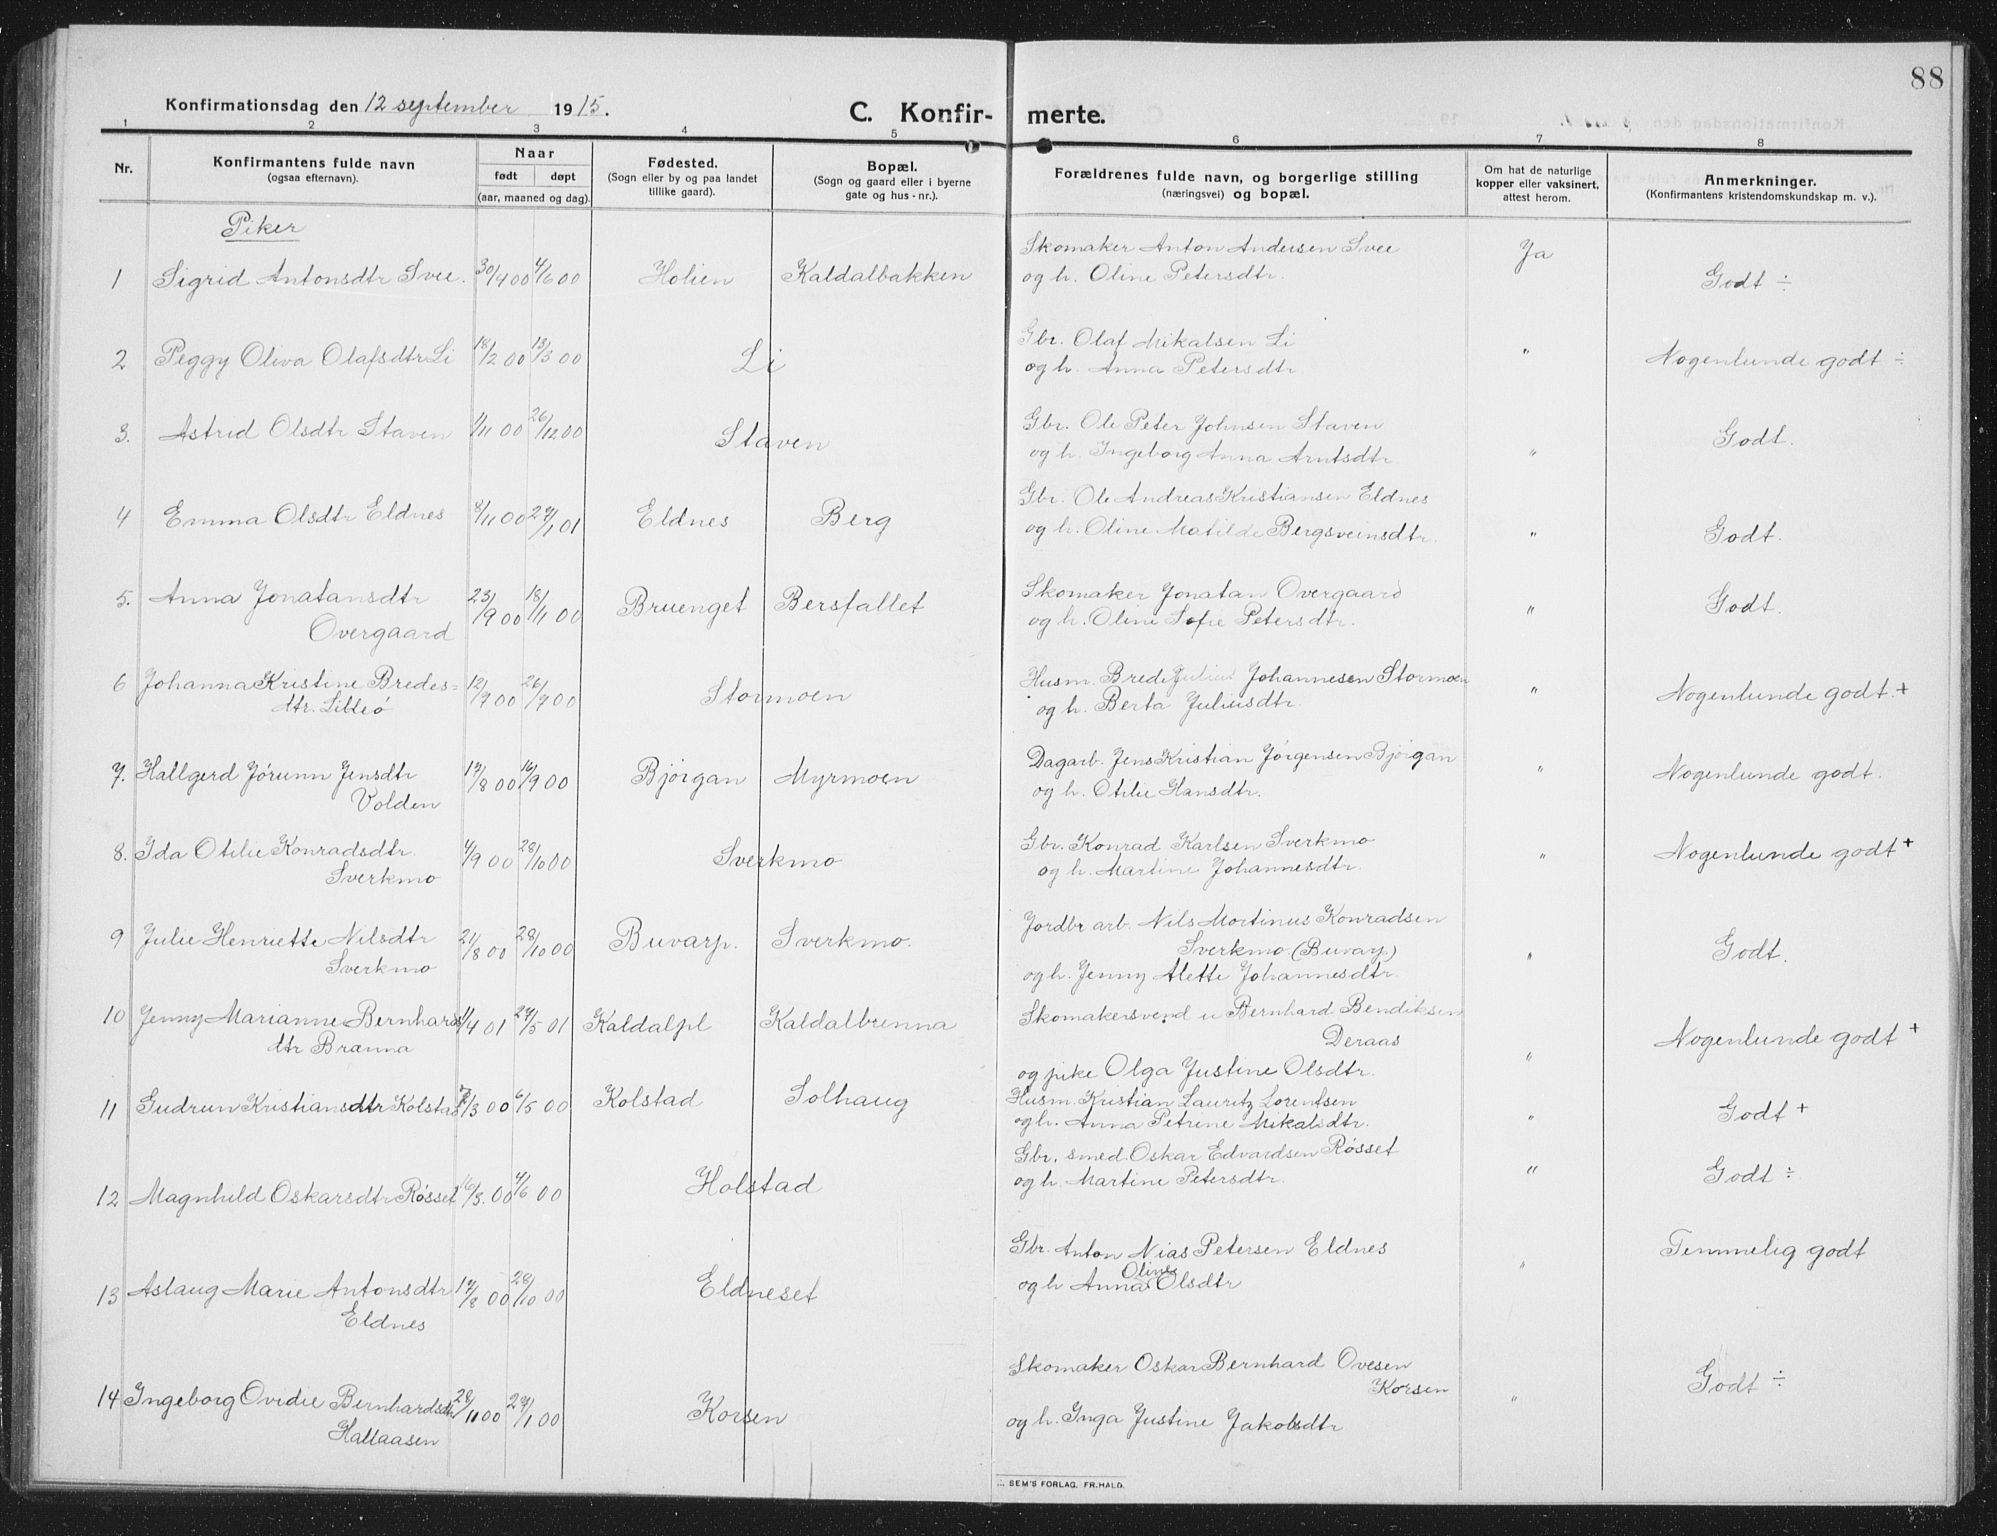 88
Konfirmationsdag den 12 september 1915.
C. Konfir-merte.
1 2 3 4 5 6 7 8
Nr.
Konfirmantens fulde navn
(ogsaa efternavn).
Naar
født døpt
(aar, maaned og dag).
Fødested.
(Sogn eller by og paa landet
tillike gaard).
Bopæl.
(Sogn og gaard eller i byerne
gate og hus-nr.).
Forældrenes fulde navn, og borgerlige stilling
(næringsvei) og bopæl.
Om hat de naturlige
kopper eller vaksinert,
attest herom.
Anmerkninger.
(Konfirmantens kristendomskundskap m. v.).
Piker
1 Sigrid Antonsdtr Svee. 30/4 00 4/6 00 Holien Kaldalbakken
Skomaker Anton Andersen Svee
og h. Oline Petersdtr.
Ja
Godt ÷
2 Peggy Oliva Olafsdtr Li 18/2 00 13/3 00 Li
Gbr. Olaf Mikalsen Li
og h. Anna Petersdtr.
"
Nogenlunde godt ÷
3. Astrid Olsdtr Staven 1/11 00 26/12 00 Staven
Gbr. Ole Peter Johnsen Staven
og h. Ingeborg Anna Arntsdtr
"
Godt.
4 Emma Olsdtr Eldnes 8/11 00 27/1 01 Eldnes Berg
Gbr. Ole Andreas Kristiansen Eldnes
og h. Oline Matilde Bergsveinsdtr.
"
Godt.
5. Anna Jonatansdtr
Overgaard 23/9 00 18/11 00 Bruenget Bersfallet
Skomaker Jonatan Overgaard
og h. Oline Sofie Petersdtr.
"
Godt.
6 Johanna Kristine Bredes=
dtr. Lilleø 12/9 00 26/9 00 Stormoen
Husm. Brede Julius Johannesen Stormoen
og h. Berta Juliusdtr.
"
Nogenlunde godt. +
7. Hallgerd Jørunn Jensdtr
Volden 17/8 00 16/9 00 Bjørgan Myrmoen
Dagarb. Jens Kristian Jørgensen Bjørgan
og h. Otilie Hansdtr.
"
Nogenlunde godt.
8. Ida Otilie Konradsdtr.
Sverkmo 4/9 00 28/10 00 Sverkmo
Gbr. Konrad Karlsen Sverkmo
og h. Martine Johannesdtr.
"
Nogenlunde godt +
9 Julie Henriette Nilsdtr
Sverkmo 21/8 00 28/10 00 Buvarp. Sverkmo.
Jordbr arb. Nils Mortinus Konradsen
Sverkmo (Buvarp)
og h. Jenny Alette Johannesdtr.
"
Godt.
10 Jenny Marianne Bernhards
dtr Brænna 11/4 01 27/5 01 Kaldalpl Kaldalbrenna
Skomakersvend u Bernhard Bendiksen
Deraas
og pike Olga Justine Olsdtr.
"
Nogenlunde godt +
11 Gudrun Kristiansdtr Kolstad 7/3 00 6/5 00 Kolstad Solhaug
Husm. Kristian Lauritz Lorentsen
og h. Anna Petrine Mikalsdtr.
"
Godt +
12 Magnhild Oskarsdtr Røsset 16/3. 00 4/6 00 Holstad
Gbr. smed. Oskar Edvardsen Røsset
og h. Martine Petersdtr.
"
Godt ÷
13 Aslaug Marie Antonsdtr
Eldnes 17/8 00 28/10 00 Eldneset
Gbr. Anton Nias Petersen Eldnes
og h Anna Oline Olsdtr
"
Temmelig godt
14 Ingeborg Ovidie Bernhardsdtr
Hallaasen 28/11 00 27/1 00 Korsen
Skomaker Oskar Bernhard Ovesen
Korsen
og h. Inga Justine Jakobsdtr
"
Godt ÷
SEM'S FORLAG, FR.HALD.